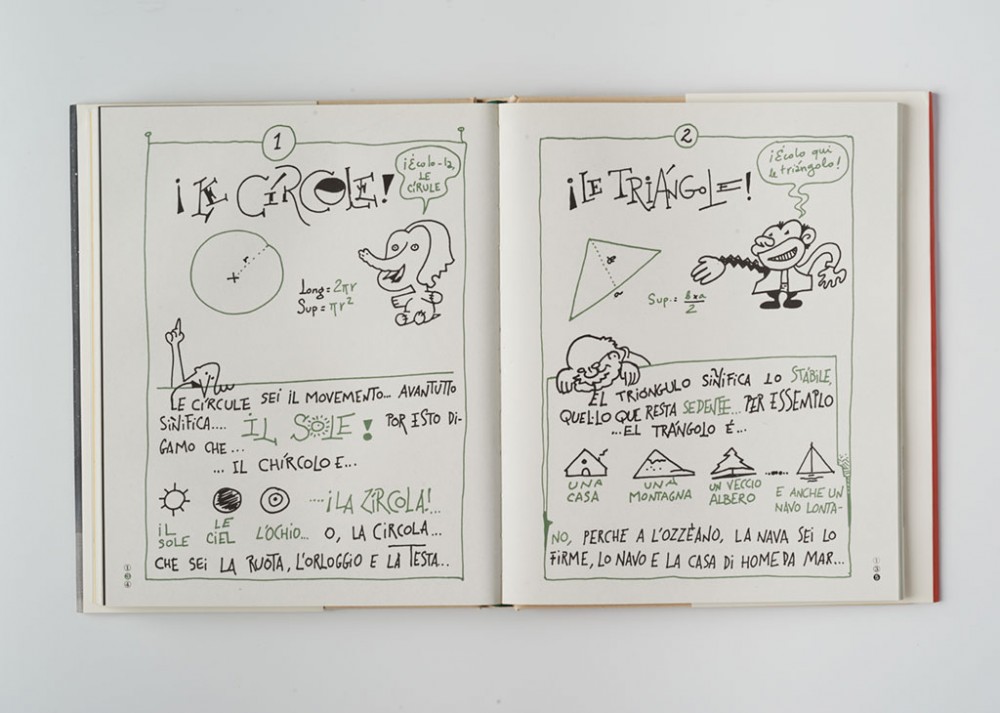 1
¡LE CÍRCOLE!
¡Écolo-la,
LE
CÍRULE
r
Long = 2πr
Sup = πr²
LE CÍRCULE SEI IL MOVEMENTO... AVANTUTTO
SIÑIFICA.... IL SOLE! POR ESTO DI-
GAMO CHE...
... IL CHÍRCOLO E...
....¡LA ZÍRCOLA!...
IL SOLE
LE CIEL
L'OCHIO... O, LA CÍRCOLA...
CHE SEI LA RUOTA, L'ORLOGGIO E LA TESTA...
134
2
¡LE TRIÁNGOLE!
¡Écolo qui
le triángolo!
b
a
Sup. = b×a/2
EL TRIÁNGULO SIÑIFICA LO STÁBILE,
QUEL·LO QUE RESTA SEDENTE... PER ESSEMPLO
...EL TRÁNGOLO É...
UNA CASA
UNA MONTAGNA
UN VECCIO ALBERO
E ANCHE UN
NAVO LONTA-
NO, PERCHE A L'OZZÈANO, LA NAVA SEI LO
FIRME, LO NAVO E LA CASA DI HOME DA MAR...
135